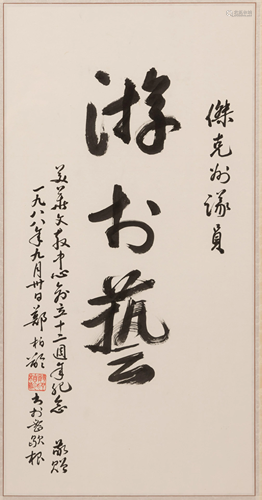 傑克州議員
游於藝
美華文教中心創立十二週年紀念 敬贈
一九八八年九月卅日鄭柏齡
書於